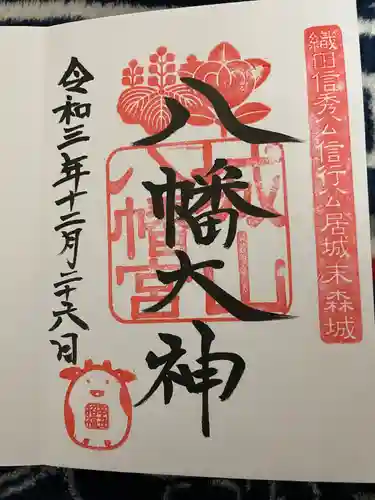 織田信秀公信行公居城末森城
八幡大神
城山八幡宮
令和三年十二月二十六日